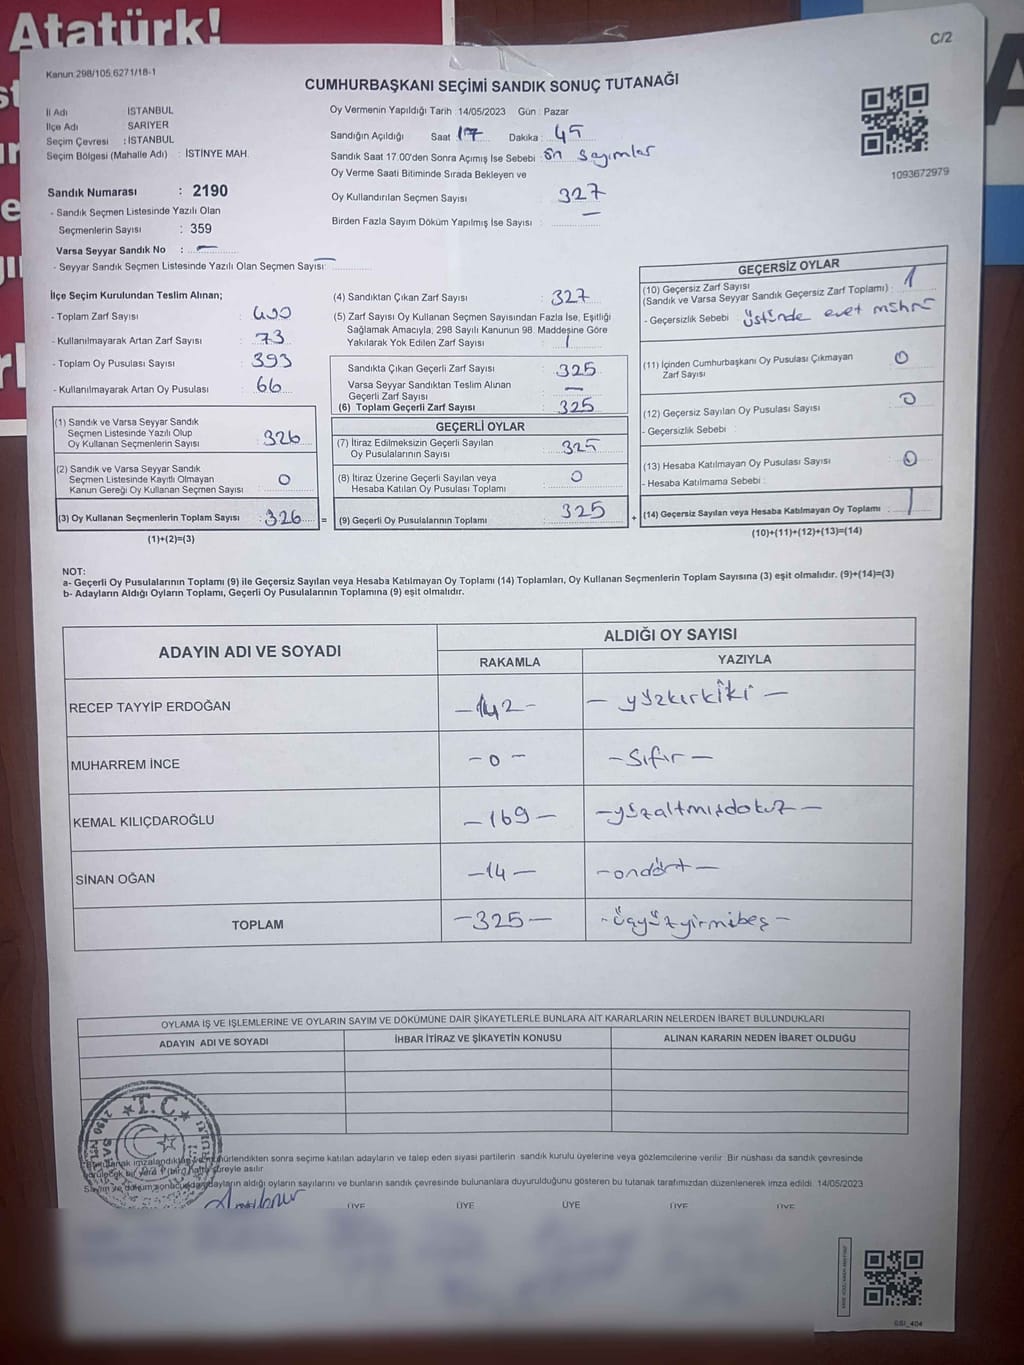 Atatürk!
C/2
Kanun:298/105.6271/18-1
CUMHURBAŞKANI SEÇİMİ SANDIK SONUÇ TUTANAĞI
İl Adı İSTANBUL
İlçe Adı SARIYER
Seçim Çevresi : İSTANBUL
Seçim Bölgesi (Mahalle Adı) : İSTİNYE MAH.
Oy Vermenin Yapıldığı Tarih 14/05/2023 Gün : Pazar
Sandığın Açıldığı Saat 17 Dakika : 45
Sandık Saat 17.00'den Sonra Açımış İse Sebebi : ön sayımlar
Oy Verme Saati Bitiminde Sırada Bekleyen ve
Oy Kullandırılan Seçmen Sayısı 327
Birden Fazla Sayım Döküm Yapılmış İse Sayısı : —
1093672979
Sandık Numarası : 2190
- Sandık Seçmen Listesinde Yazılı Olan
Seçmenlerin Sayısı : 359
Varsa Seyyar Sandık No : —
- Seyyar Sandık Seçmen Listesinde Yazılı Olan Seçmen Sayısı: —
İlçe Seçim Kurulundan Teslim Alınan;
- Toplam Zarf Sayısı : 400
- Kullanılmayarak Artan Zarf Sayısı : 73
- Toplam Oy Pusulası Sayısı : 393
- Kullanılmayarak Artan Oy Pusulası : 66
(1) Sandık ve Varsa Seyyar Sandık
Seçmen Listesinde Yazılı Olup
Oy Kullanan Seçmenlerin Sayısı : 326
(2) Sandık ve Varsa Seyyar Sandık
Seçmen Listesinde Kayıtlı Olmayan
Kanun Gereği Oy Kullanan Seçmen Sayısı : 0
(3) Oy Kullanan Seçmenlerin Toplam Sayısı : 326 =
(1)+(2)=(3)
(4) Sandıktan Çıkan Zarf Sayısı : 327
(5) Zarf Sayısı Oy Kullanan Seçmen Sayısından Fazla İse, Eşitliği
Sağlamak Amacıyla, 298 Sayılı Kanunun 98. Maddesine Göre
Yakılarak Yok Edilen Zarf Sayısı : 1
Sandıkta Çıkan Geçerli Zarf Sayısı : 325
Varsa Seyyar Sandıktan Teslim Alınan
Geçerli Zarf Sayısı : —
(6) Toplam Geçerli Zarf Sayısı : 325
GEÇERLİ OYLAR
(7) İtiraz Edilmeksizin Geçerli Sayılan
Oy Pusulalarının Sayısı : 325
(8) İtiraz Üzerine Geçerli Sayılan veya
Hesaba Katılan Oy Pusulası Toplamı : 0
(9) Geçerli Oy Pusulalarının Toplamı : 325 +
GEÇERSİZ OYLAR
(10) Geçersiz Zarf Sayısı
(Sandık ve Varsa Seyyar Sandık Geçersiz Zarf Toplamı) : 1
- Geçersizlik Sebebi : üstünde evet mührü
(11) İçinden Cumhurbaşkanı Oy Pusulası Çıkmayan
Zarf Sayısı : 0
(12) Geçersiz Sayılan Oy Pusulası Sayısı : 0
- Geçersizlik Sebebi :
(13) Hesaba Katılmayan Oy Pusulası Sayısı : 0
- Hesaba Katılmama Sebebi :
(14) Geçersiz Sayılan veya Hesaba Katılmayan Oy Toplamı : 1
(10)+(11)+(12)+(13)=(14)
NOT:
a- Geçerli Oy Pusulalarının Toplamı (9) ile Geçersiz Sayılan veya Hesaba Katılmayan Oy Toplamı (14) Toplamları, Oy Kullanan Seçmenlerin Toplam Sayısına (3) eşit olmalıdır. (9)+(14)=(3)
b- Adayların Aldığı Oyların Toplamı, Geçerli Oy Pusulalarının Toplamına (9) eşit olmalıdır.
ADAYIN ADI VE SOYADI ALDIĞI OY SAYISI
RAKAMLA YAZIYLA
RECEP TAYYİP ERDOĞAN —142— — yüzkırkiki —
MUHARREM İNCE —0— —sıfır—
KEMAL KILIÇDAROĞLU —169— —yüzaltmışdokuz—
SİNAN OĞAN —14— —ondört—
TOPLAM —325— —üçyüzyirmibeş—
OYLAMA İŞ VE İŞLEMLERİNE VE OYLARIN SAYIM VE DÖKÜMÜNE DAİR ŞİKAYETLERLE BUNLARA AİT KARARLARIN NELERDEN İBARET BULUNDUKLARI
ADAYIN ADI VE SOYADI İHBAR İTİRAZ VE ŞİKAYETİN KONUSU ALINAN KARARIN NEDEN İBARET OLDUĞU
T.C.
2190
imzalandıktan mühürlendikten sonra seçime katılan adayların ve talep eden siyasi partilerin sandık kurulu üyelerine veya gözlemcilerine verilir. Bir nüshası da sandık çevresinde
görülecek bir yere 1 (bir) hafta süreyle asılır.
Sayım ve döküm sonucu adayların aldığı oyların sayılarını ve bunların sandık çevresinde bulunanlara duyurulduğunu gösteren bu tutanak tarafımızdan düzenlenerek imza edildi. 14/05/2023
ÜYE ÜYE ÜYE ÜYE ÜYE
GSI_404